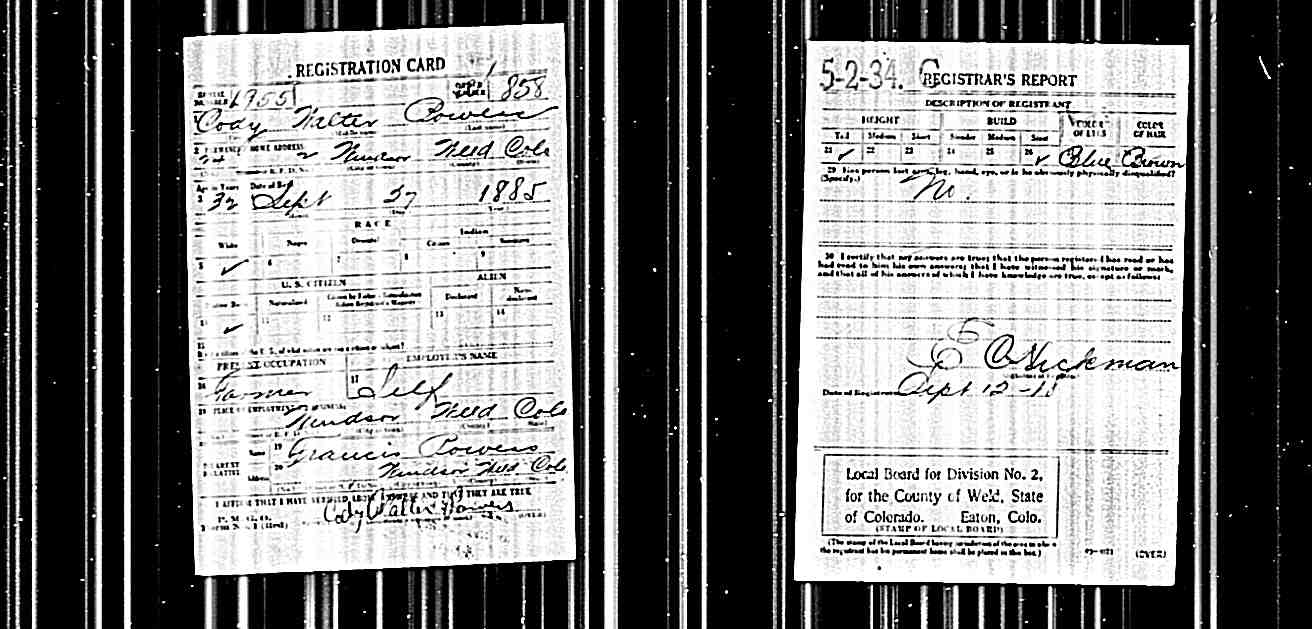 REGISTRATION CARD
SERIAL NUMBER 1955 ORDER NUMBER 858
Cody Walter Powers
(Middle name) (Last name)
2 PERMANENT HOME ADDRESS
2 Windsor Weld Colo
Age in Years Date of Birth
3 32 Sept 27 1885
RACE
White Negro Oriental Indian
Citizen
5 ✓ 6 7 8 9
U. S. CITIZEN ALIEN
Naturalized Declarant
✓ 11 12 13 14
15
PRESENT OCCUPATION EMPLOYER'S NAME
16 Farmer 17 Self
18 PLACE OF EMPLOYMENT OR BUSINESS
Windsor Weld Colo
NEAREST RELATIVE
Name 19 Francis Powers
Address 20 Windsor Weld Colo
I AFFIRM THAT I HAVE VERIFIED ABOVE ANSWERS AND THAT THEY ARE TRUE
P. M. G. O.
Form No. 1 (Red)
Cody Walter Powers
(OVER)
5-2-34. C REGISTRAR'S REPORT
DESCRIPTION OF REGISTRANT
HEIGHT BUILD COLOR OF EYES COLOR OF HAIR
Tall Medium Short Slender Medium Stout
21 ✓ 22 23 24 25 26 ✓ Blue Brown
29 Has person lost arm, leg, hand, eye, or is he obviously physically disqualified?
(Specify.) No.
30 I certify that my answers are true; that the person registered has read or has
had read to him his own answers; that I have witnessed his signature or mark,
and that all of his answers of which I have knowledge are true, except as follows:
E C Hickman
Date of Registration Sept 12-18
Local Board for Division No. 2,
for the County of Weld, State
of Colorado. Eaton, Colo.
(STAMP OF LOCAL BOARD)
(The stamp of the Local Board having jurisdiction of the area in which
the registrant has his permanent home shall be placed in this box.)
(OVER)